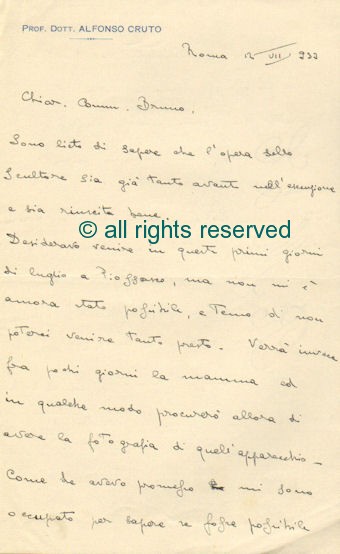 PROF. DOTT. ALFONSO CRUTO
Roma 12 VII 933
Chiar. Comm. Bruno,
Sono lieto di sapere che l'opera dello
Scultore sia già tanto avanti nell'esecuzione
e sia riuscita bene.
© all rights reserved
Desideravo venire in questi primi giorni
di luglio a Piossasco, ma non mi è
ancora stato possibile, e temo di non
poterci venire tanto presto. Verrà invece
fra pochi giorni la mamma ed
in qualche modo procurerò allora di
avere la fotografia di quell'apparecchio -
Come Le avevo promesso mi sono
occupato per sapere se fosse possibile